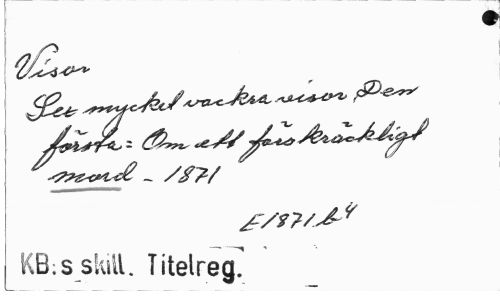 Visor
Sex mycket vackra visor, Den
första: Om ett förskräckligt
mord - 1871
E1871.b4
KB:s skill. Titelreg.